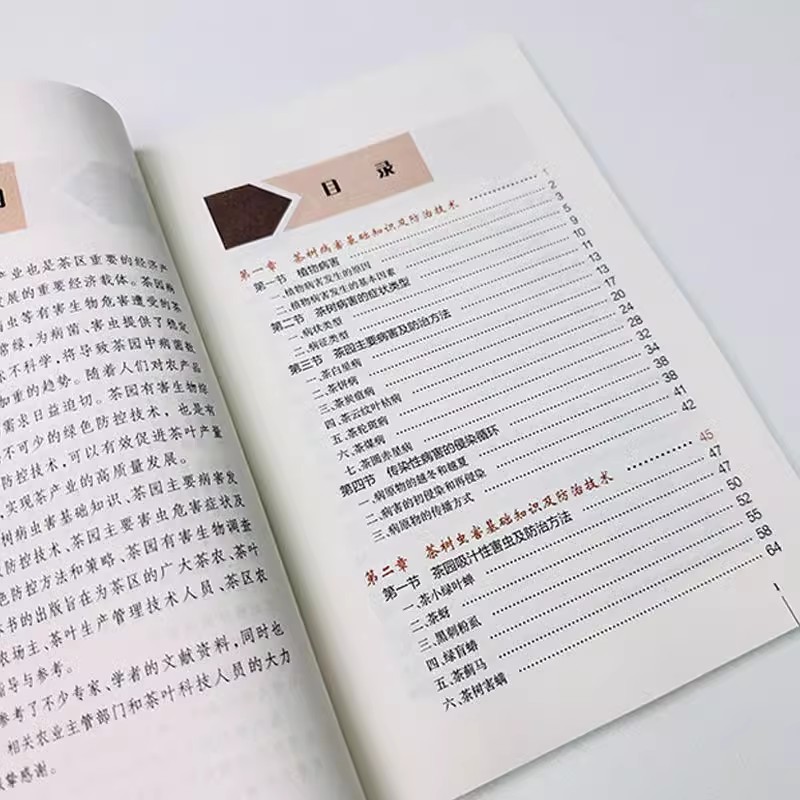 产业也是茶区重要的经济产
发展的重要经济载体。茶园病
虫等有害生物危害遭受的茶
常绿，为病菌、害虫提供了稳定
不科学，将导致茶园中病菌数
加重的趋势。随着人们对农产品
需求日益迫切。茶园有害生物综
不可少的绿色防控技术，也是有
防控技术，可以有效促进茶叶产量
，实现茶产业的高质量发展。
树病虫害基础知识、茶园主要病害发
防控技术、茶园主要害虫危害症状及
色防控方法和策略、茶园有害生物调查
书的出版旨在为茶区的广大茶农、茶叶
农场主、茶叶生产管理技术人员、茶区农
指导与参考。
参考了不少专家、学者的文献资料，同时也
相关农业主管部门和茶叶科技人员的大力
挚感谢。
目 录
第一章 茶树病害基础知识及防治技术 1
第一节 植物病害 2
一、植物病害发生的原因 3
二、植物病害发生的基本因素 5
第二节 茶树病害的症状类型 9
一、病状类型 10
二、病征类型 11
第三节 茶园主要病害及防治方法 13
一、茶白星病 13
二、茶饼病 17
三、茶炭疽病 20
四、茶云纹叶枯病 24
五、茶轮斑病 28
六、茶煤病 32
七、茶圆赤星病 34
第四节 传染性病害的侵染循环 38
一、病原物的越冬和越夏 38
二、病害的初侵染和再侵染 41
三、病原物的传播方式 42
第二章 茶树虫害基础知识及防治技术 45
第一节 茶园吸汁性害虫及防治方法 47
一、茶小绿叶蝉 47
二、茶蚜 50
三、黑刺粉虱 52
四、绿盲蝽 55
五、茶蓟马 58
六、茶树害螨 64
1